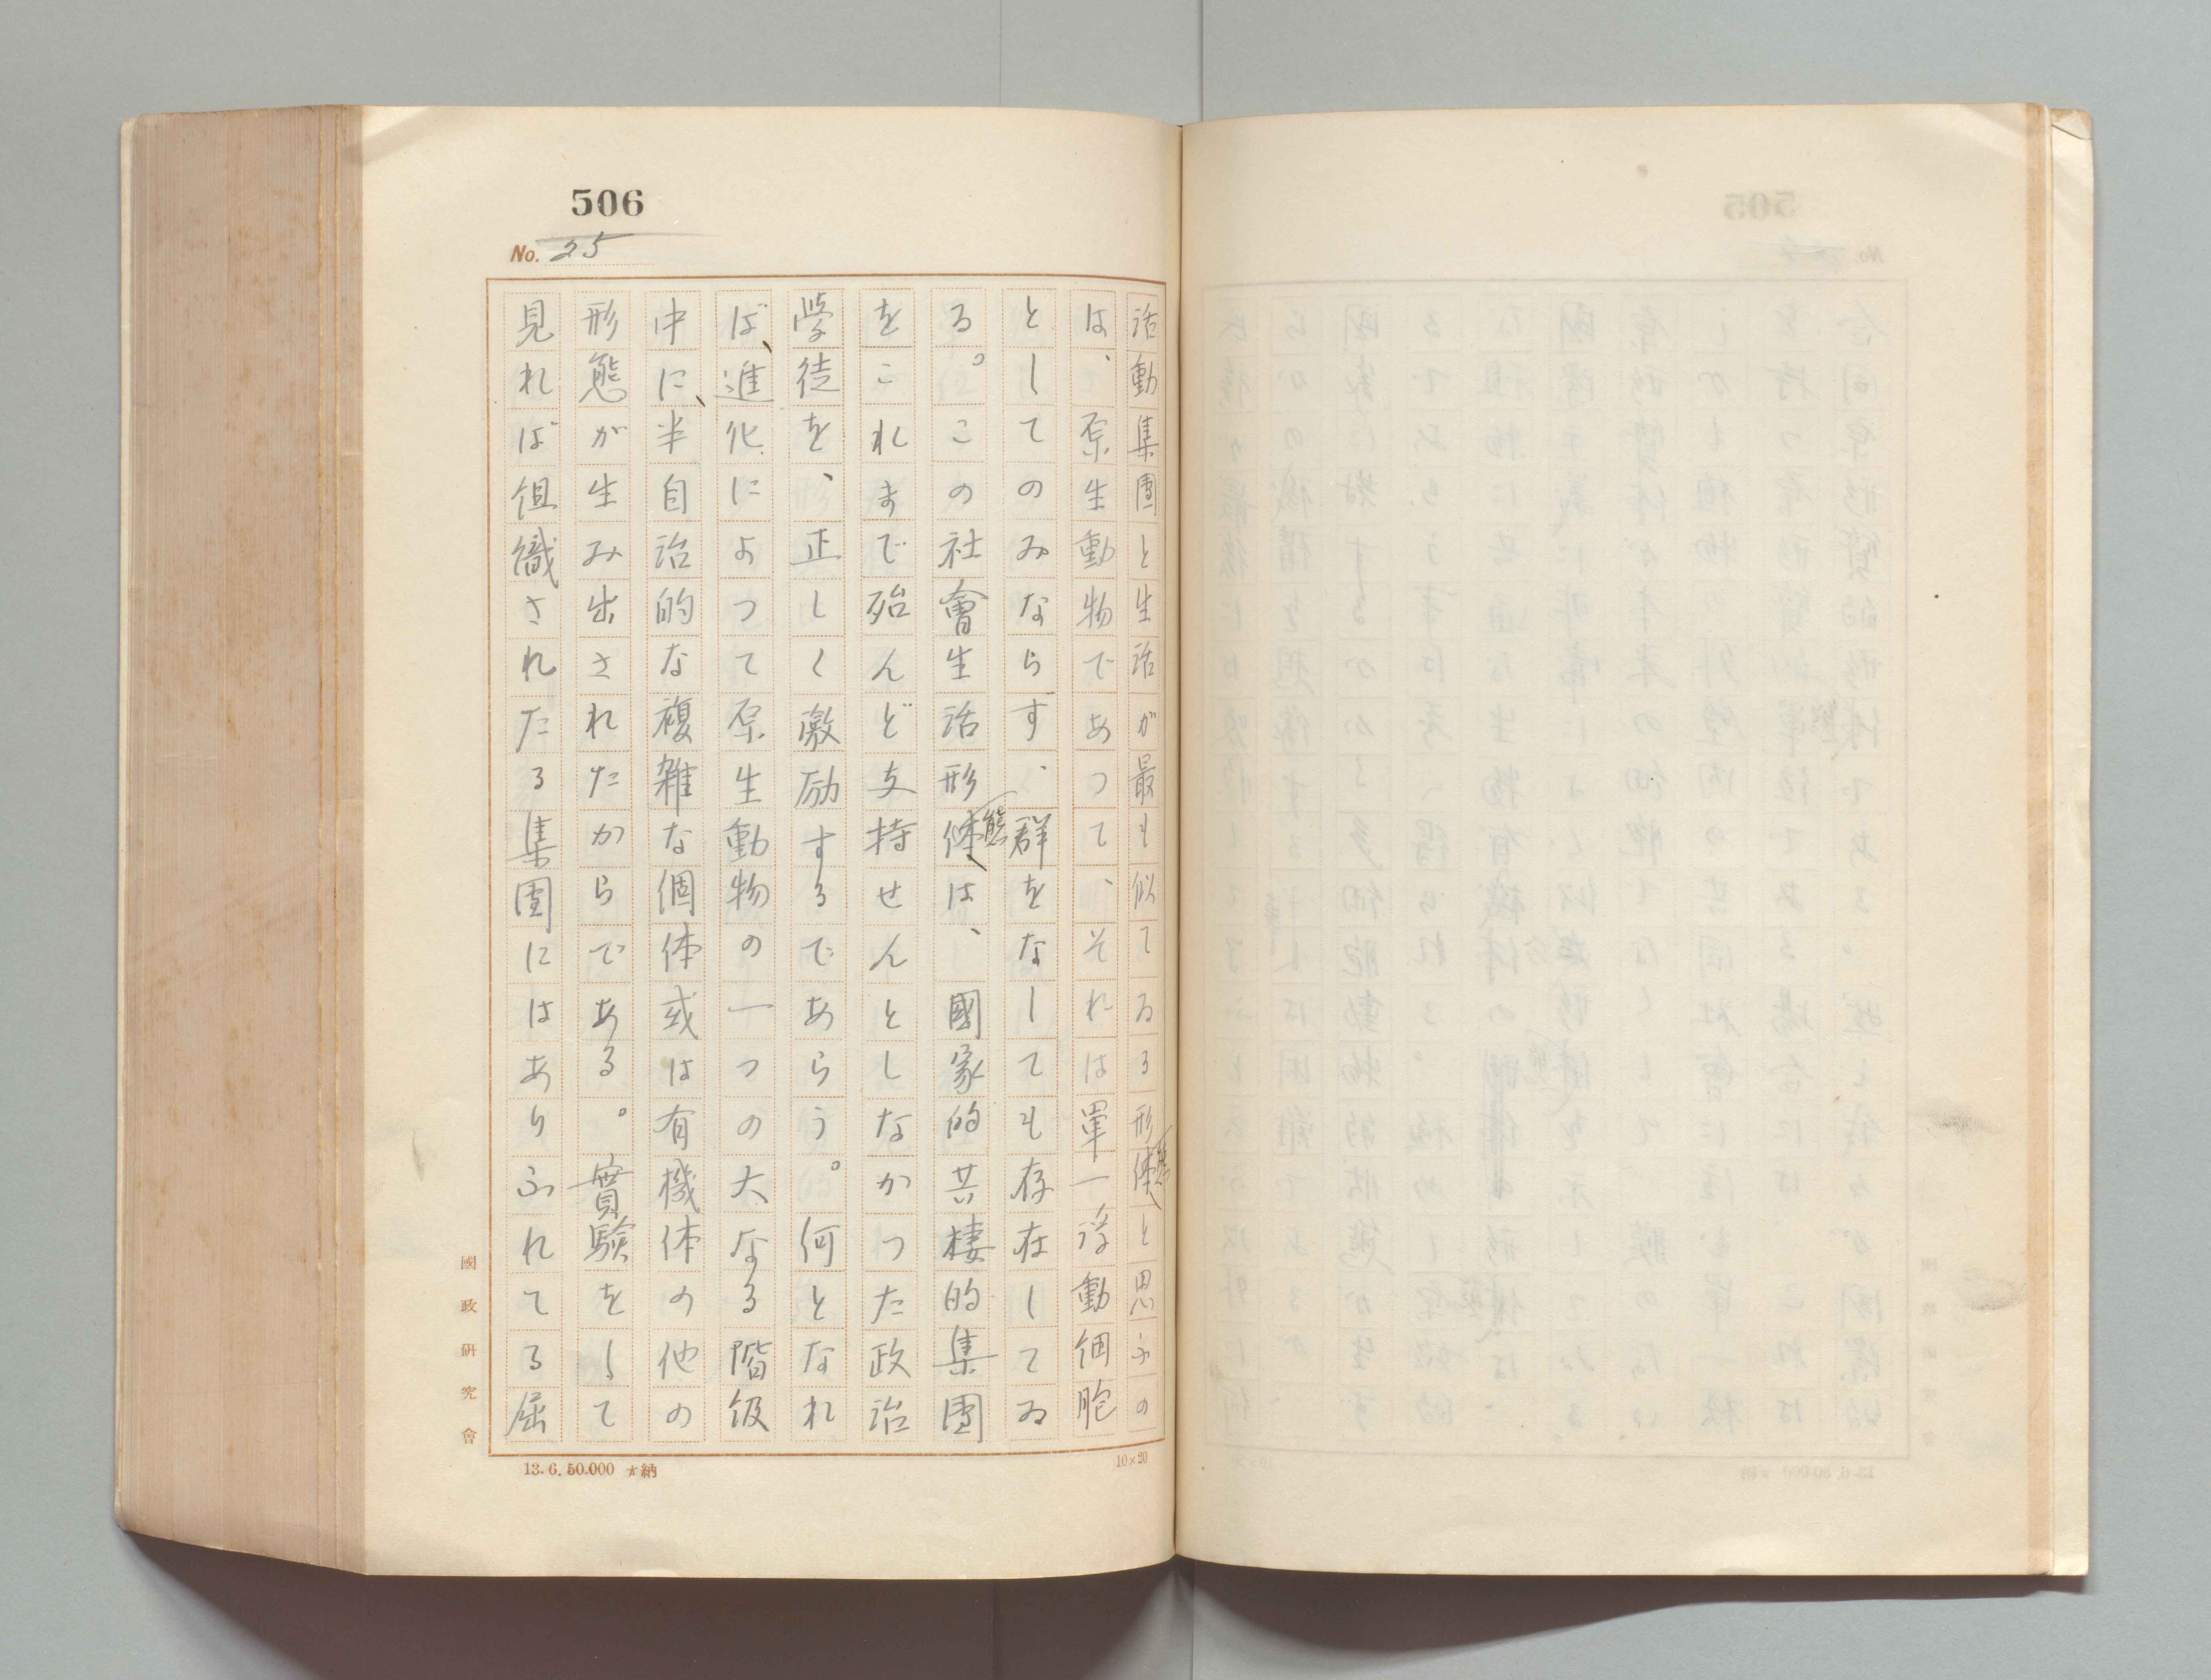 506
No. 25
活動集團と生活が最も似てゐる形態と思ふの
は、原生動物であつて、それは單一浮動細胞
としてのみならず、群をなしても存在してゐ
る。この社會生活形態は、國家的共棲的集團
をこれまで殆んど支持せんとしなかつた政治
学徒を、正しく激励するであらう。何となれ
ば、進化によつて原生動物の一つの大なる階級
中に、半自治的な複雑な個体或は有機体の他の
形態が生み出されたからである。實験をして
見れば组織されたる集團にはありふれてる屈
國政研究會
13.6.50.000 納
10×20